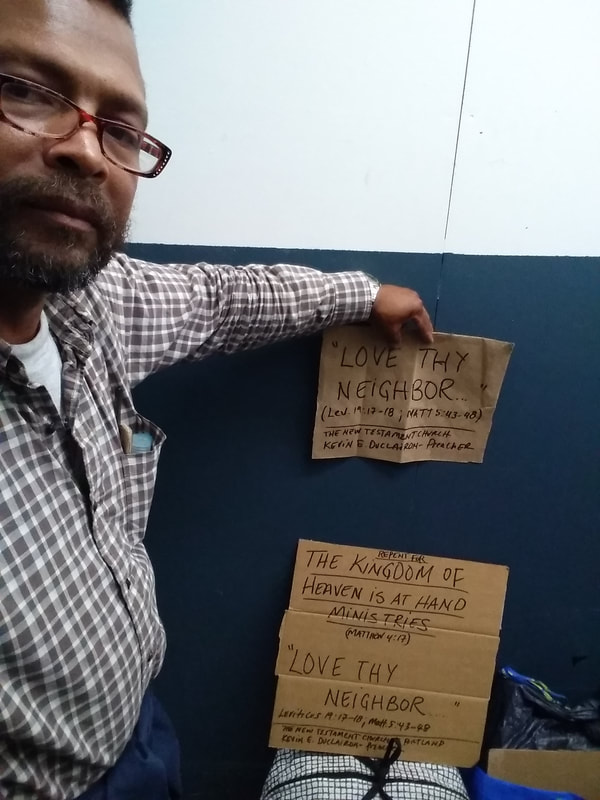 "LOVE THY
NEIGHBOR... "
(Lev. 19:17-18 ; MATT 5:43-48)
THE NEW TESTAMENT CHURCH
KEVIN E. DUCLAIRON- PREACHER
REPENT FOR
THE KINGDOM OF
HEAVEN IS AT HAND
MINISTRIES
(MATTHEW 4:17)
"LOVE THY
NEIGHBOR... "
Leviticus 19:17-18; Matt 5:43-48
THE NEW TESTAMENT CHURCH PORTLAND
KEVIN E. DUCLAIRON- PREACHER